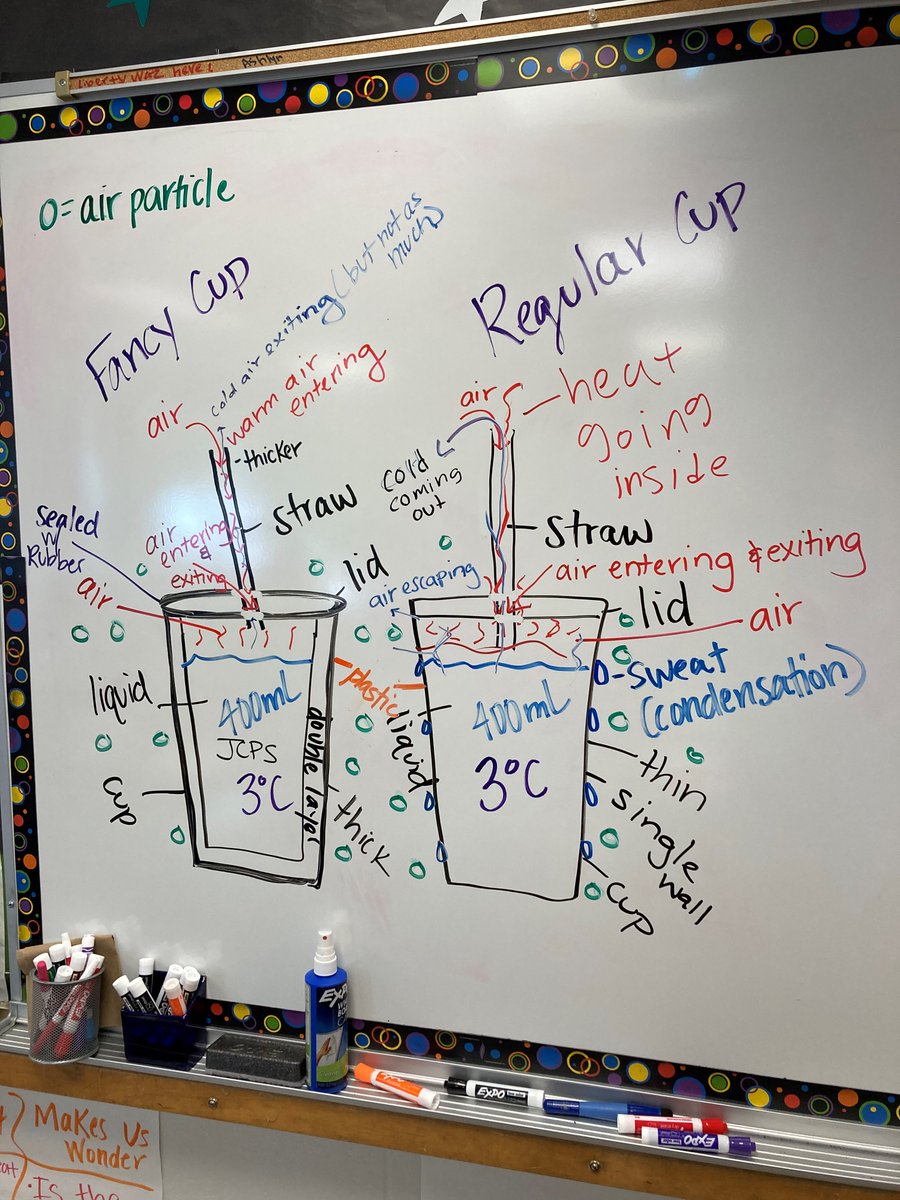 Liberty Waz here!
Ashlyn
O = air particle
Fancy Cup
cold air exiting (but not as
much)
warm air
entering
air
thicker
straw
Sealed
w/
Rubber
air
entering
&
exiting
air
lid
liquid
400mL
JCPS
3°C
double layer
plastic
cup
thick
Regular Cup
air
heat
going
inside
cold
coming
out
straw
air entering & exiting
air escaping
lid
air
sweat
(condensation)
liquid
400mL
3°C
thin
single
wall
cup
EXPO
EXPO
EXPO
EXPO
Makes Us
Wonder
Is the